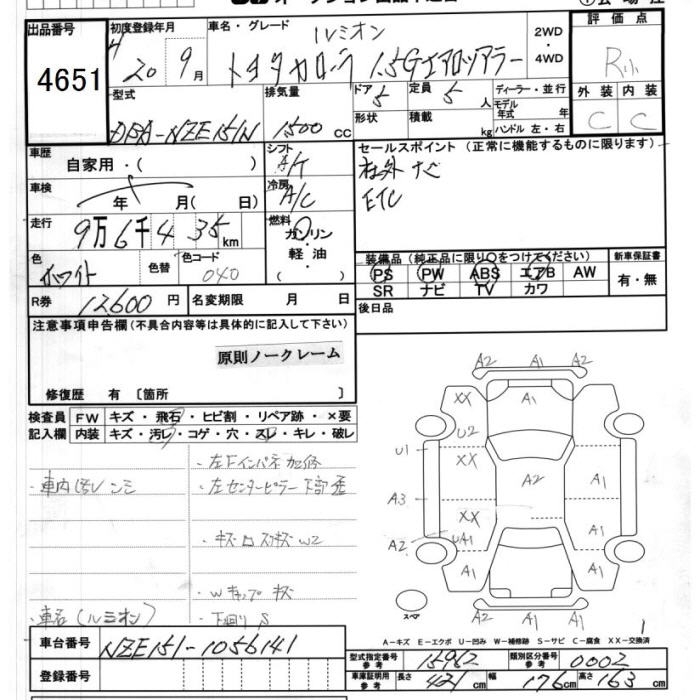 出品番号
4651
初度登録年月
20 9月
車名・グレード
ルミオン
トヨタカローラ 1.5Gエアロツアラー
2WD
・
4WD
評価点
R
外装 内装
C C
型式
DBA-NZE151N
排気量
1500 cc
ドア 5
形状
定員 5 人
積載 kg
ディーラー・並行
モデル
年式 年
ハンドル 左・右
車歴
自家用・( )
シフト
A/T
セールスポイント (正常に機能するものに限ります)
社外 ナビ
ETC
車検
年 月( 日)
冷房
A/C
走行
9万6千435km
燃料
ガソリン
軽油
( )
色
ホワイト
色替
色コード
040
装備品(純正品に限り○をつけてください)
PS PW ABS エアB AW
SR ナビ TV カワ
新車保証書
有・無
R券 12600円
名変期限 月 日
後日品
注意事項申告欄(不具合内容等は具体的に記入して下さい)
原則ノークレーム
修復歴 有〔箇所 〕
検査員
記入欄
FW キズ・飛石・ヒビ割・リペア跡・×要
内装 キズ・汚レ・コゲ・穴・スレ・キレ・破レ
・左Fインパネ
・車内汚レ シミ
・左センターピラー下部
・Wキャップ キズ
・車名(ルミオン)
・下回り S
A2 A1 A2
XX A1
U2
U1 XX
A2 A1
A3
XX A1
A2 UA1
A1 A1
A2 A1 A1
スペア
1
A-キズ E-エクボ U-凹み W-補修跡 S-サビ C-腐食 XX-交換済
車台番号 NZE151-1056141
登録番号
型式指定番号
参考
15982
類別区分番号
参考
0002
車庫証明用
参考
長さ 421cm 幅 176cm 高さ 163cm